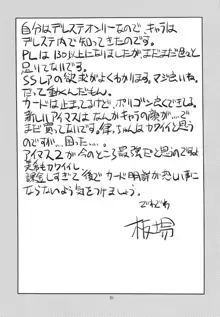 自分はデレステオンリーなので、キャラは
デレステ内で知ってきたのです。
PLは130以上になりましたが、まだまだ色々と
足りてないです。
SSレアの欲求がよくわかります。マジ良いね。
だって動くんだもん。
カードは止まってるけど、ポリゴン良くできてしよ。
新しいアイマスはなんかキャラの顔が...で
まだ買ってないです。律っちゃんはカワイイと思う
のですが...困った....。
アイマス2が今のところ最強だと思うのですよ
美希もカワイイし。
課金しすぎて後でカード明細が恐い事に
ならないよう気をつけましょう。
でわでわ
板場